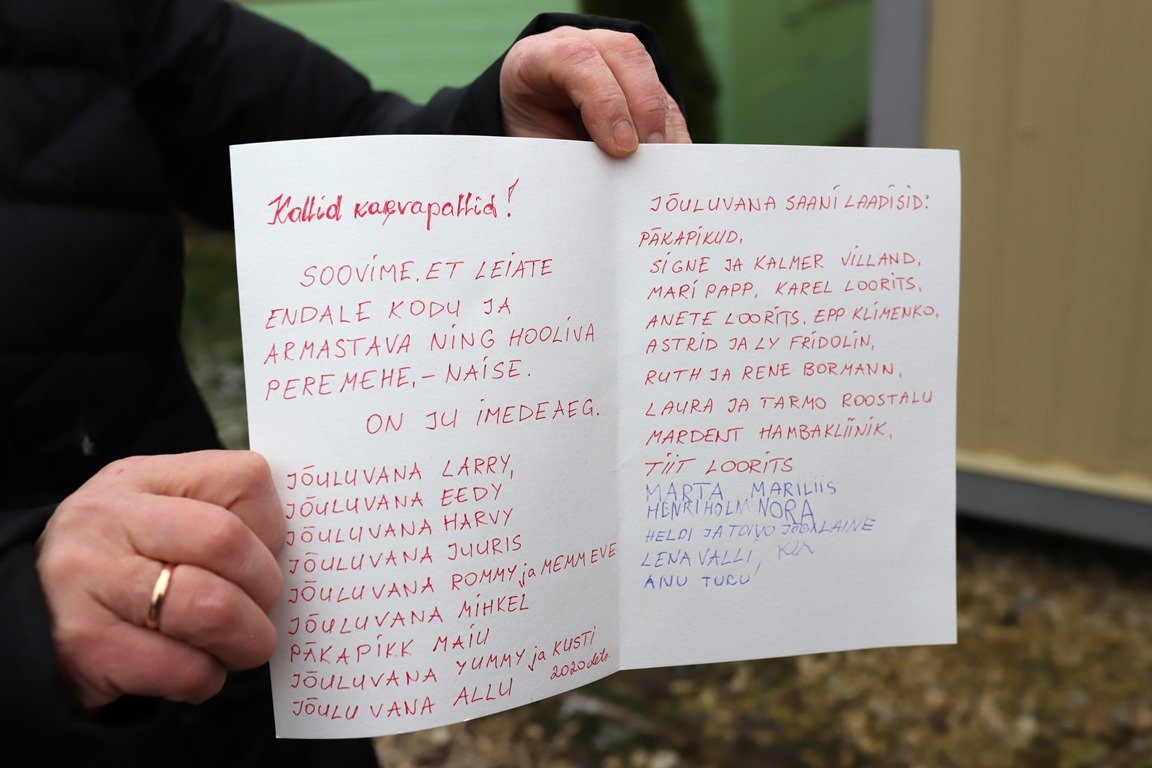 Kallid karvapallid!
SOOVIME, ET LEIATE
ENDALE KODU JA
ARMASTAVA NING HOOLIVA
PEREMEHE,- NAISE.
ON JU IMEDEAEG.
JÕULUVANA LARRY,
JÕULUVANA EEDY
JÕULUVANA HARVY
JÕULUVANA JUURIS
JÕULUVANA ROMMY ja MEMM EVE
JÕULUVANA MIHKEL
PÄKAPIKK MAIU
JÕULUVANA YUMMY ja KUSTI
JÕULUVANA ALLU 2020 dets.
JÕULUVANA SAANI LAADISID:
PÄKAPIKUD,
SIGNE JA KALMER VILLAND,
MARI PAPP, KAREL LOORITS,
ANETE LOORITS, EPP KLIMENKO,
ASTRID JA LY FRIDOLIN,
RUTH JA RENE BORMANN,
LAURA JA TARMO ROOSTALU
MARDENT HAMBAKLIINIK,
TIIT LOORITS
MARTA MARILIIS
HENRI HOLM NORA
HELDI JA TOIVO JÕGALAINE
LENA VALLI
AINU TUBU